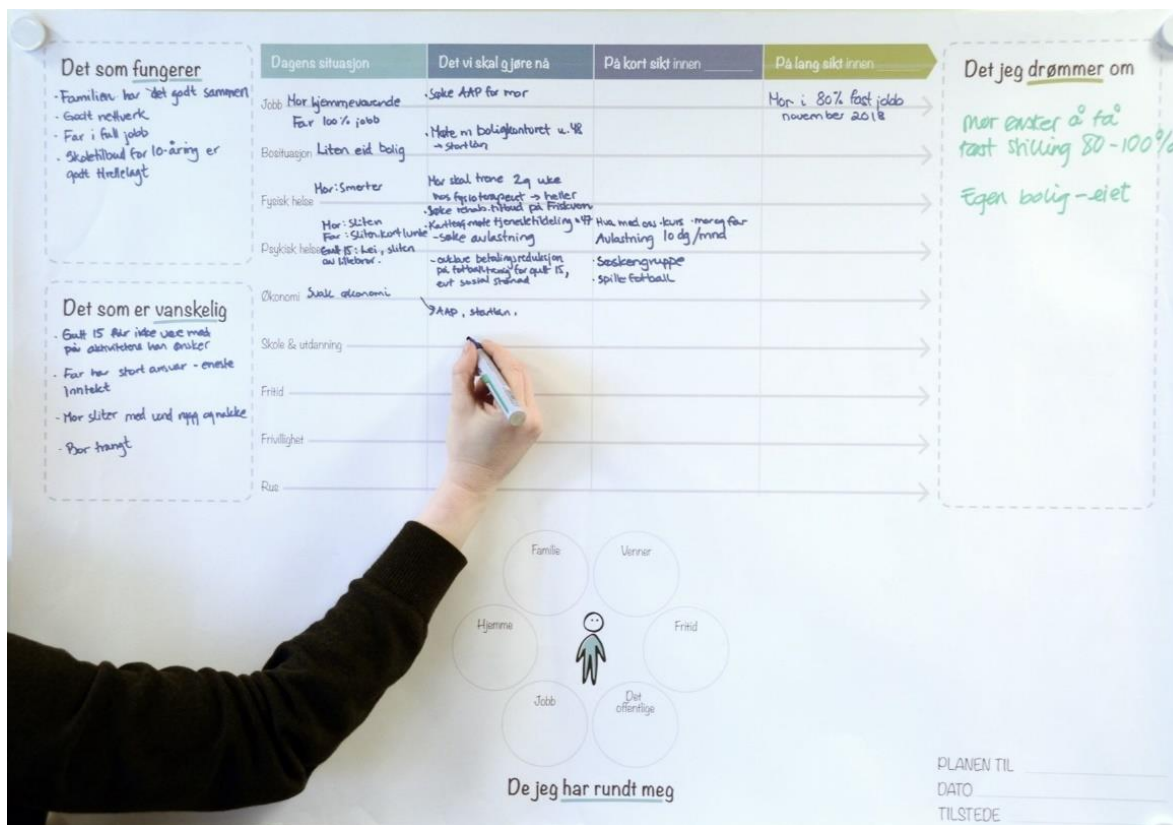 Det som fungerer
- Familien har det godt sammen
- Godt nettverk
- Far i full jobb
- Skoletilbud for 10-åring er
godt tilrettelagt
Det som er vanskelig
- Gutt 15 får ikke være med
på aktivitetene han ønsker
- Far har stort ansvar - eneste
inntekt
- Mor sliter med vond rygg og nakke
- Bor trangt
Dagens situasjon
Det vi skal gjøre nå
På kort sikt innen
På lang sikt innen
Jobb Mor hjemmeværende
Far 100% jobb
· Søke AAP for mor
Mor i 80% fast jobb
november 2018
Bosituasjon Liten eid bolig
· Møte m boligkontoret u.48
→ startlån
Fysisk helse Mor: Smerter
Mor skal trene 2g uke
hos fysioterapeut →
· Søke rehab. tilbud på
Psykisk helse
Mor: Sliten
Far: Sliten, kort lunte
Gutt 15: Lei, sliten
av lillebror.
møte tjenestetildeling
- søke avlastning
Hva med oss-kurs - mor og far
Avlastning 10 dg/mnd
- avklare betalingsreduksjon
på fotballtrening for gutt 15,
evt sosial stønad
· Søskengruppe
· Spille fotball
Økonomi Svak økonomi
→ AAP, startlån.
Skole & utdanning
Fritid
Frivillighet
Rus
Det jeg drømmer om
Mor ønsker å få
fast stilling 80-100%
Egen bolig - eiet
Familie
Venner
Hjemme
Fritid
Jobb
Det
offentlige
De jeg har rundt meg
PLANEN TIL
DATO
TILSTEDE